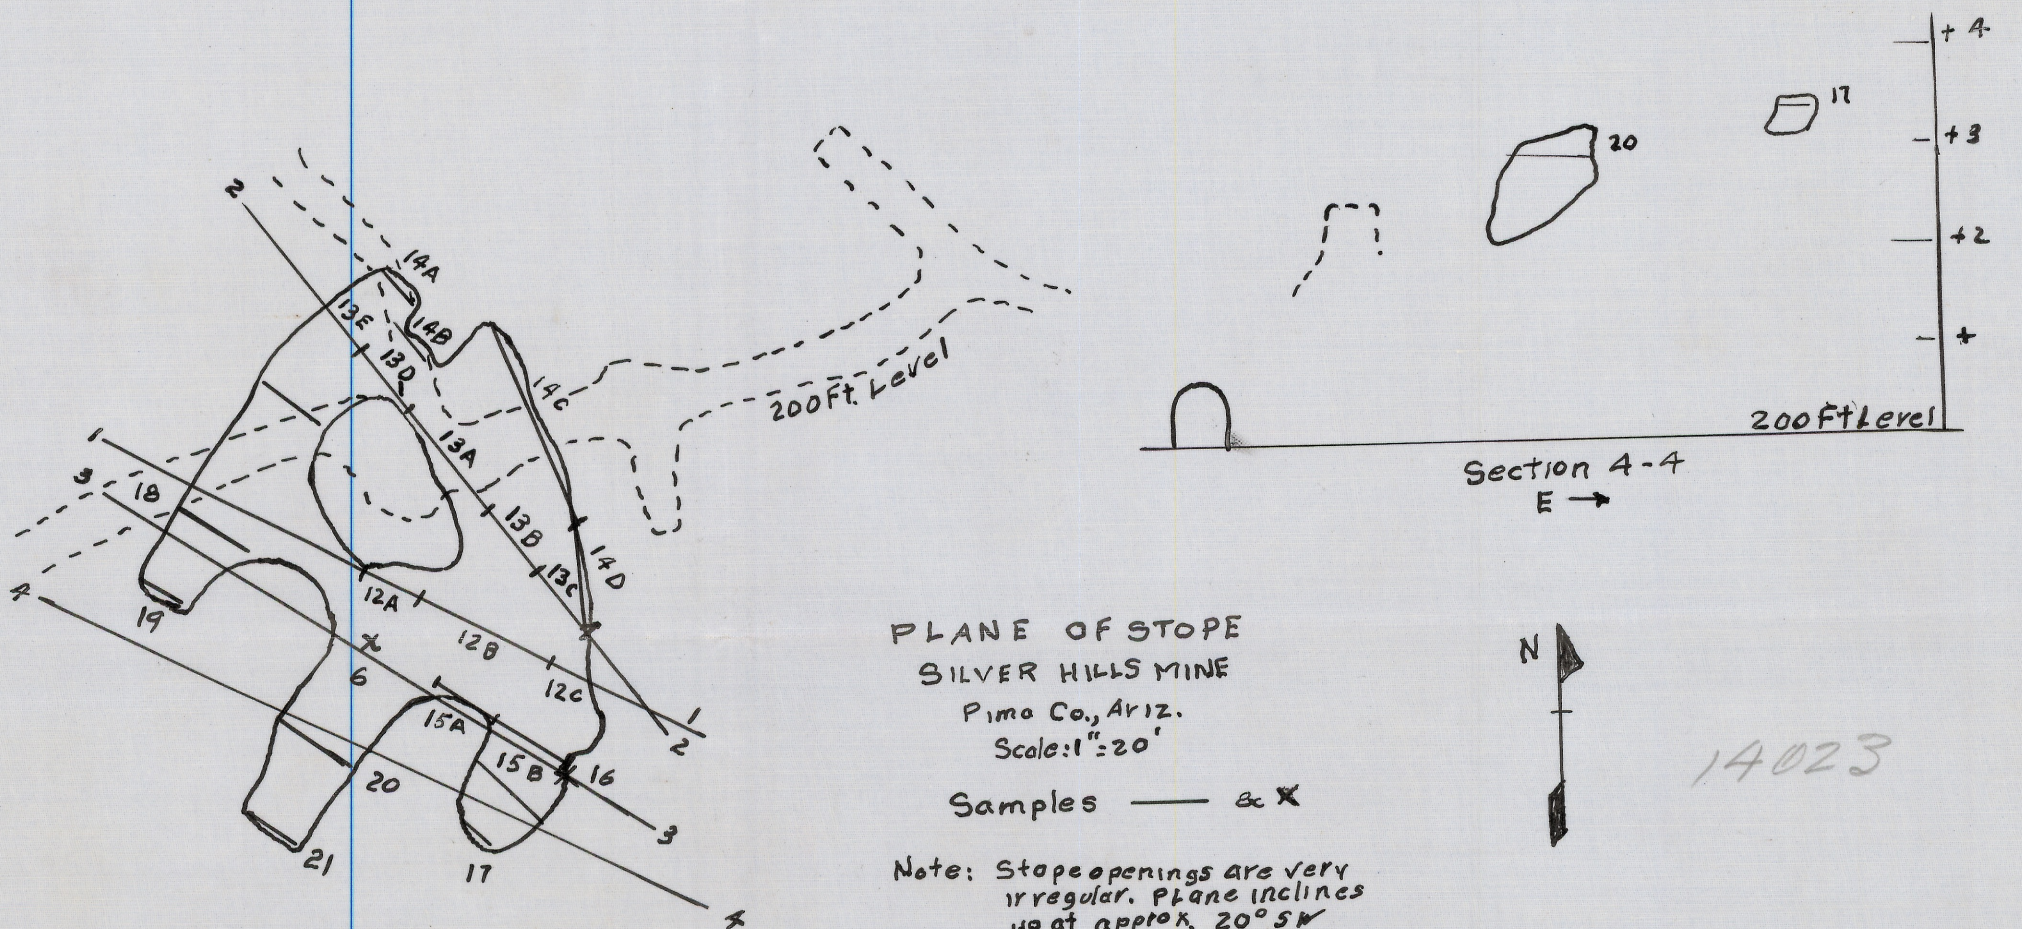 2
14A
13E
14B
13D
14C
200 Ft. Level
1
13A
3
18
13B
14D
13C
4
12A
19
12B
x
6
12C
15A
1
2
15B
16
20
3
21
17
4
+4
17
+3
20
+2
+
200 Ft Level
Section 4-4
E →
PLANE OF STOPE
SILVER HILLS MINE
Pima Co., Ariz.
Scale: 1" = 20'
Samples — & X
N
14023
Note: Stope openings are very
irregular. Plane inclines
up at approx. 20° SW